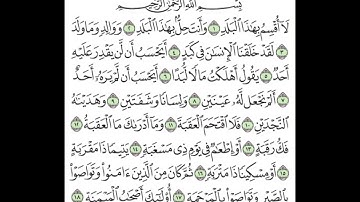 بِسْمِ اللَّهِ الرَّحْمَٰنِ الرَّحِيمِ
لَا أُقْسِمُ بِهَٰذَا الْبَلَدِ ١ وَأَنتَ حِلٌّ بِهَٰذَا الْبَلَدِ ٢ وَوَالِدٍ وَمَا وَلَدَ
٣ لَقَدْ خَلَقْنَا الْإِنسَانَ فِي كَبَدٍ ٤ أَيَحْسَبُ أَن لَّن يَقْدِرَ عَلَيْهِ
أَحَدٌ ٥ يَقُولُ أَهْلَكْتُ مَالًا لُّبَدًا ٦ أَيَحْسَبُ أَن لَّمْ يَرَهُ أَحَدٌ
٧ أَلَمْ نَجْعَل لَّهُ عَيْنَيْنِ ٨ وَلِسَانًا وَشَفَتَيْنِ ٩ وَهَدَيْنَاهُ
النَّجْدَيْنِ ١٠ فَلَا اقْتَحَمَ الْعَقَبَةَ ١١ وَمَا أَدْرَاكَ مَا الْعَقَبَةُ ١٢
فَكُّ رَقَبَةٍ ١٣ أَوْ إِطْعَامٌ فِي يَوْمٍ ذِي مَسْغَبَةٍ ١٤ يَتِيمًا ذَا مَقْرَبَةٍ
١٥ أَوْ مِسْكِينًا ذَا مَتْرَبَةٍ ١٦ ثُمَّ كَانَ مِنَ الَّذِينَ آمَنُوا وَتَوَاصَوْا
بِالصَّبْرِ وَتَوَاصَوْا بِالْمَرْحَمَةِ ١٧ أُولَٰئِكَ أَصْحَابُ الْمَيْمَنَةِ ١٨